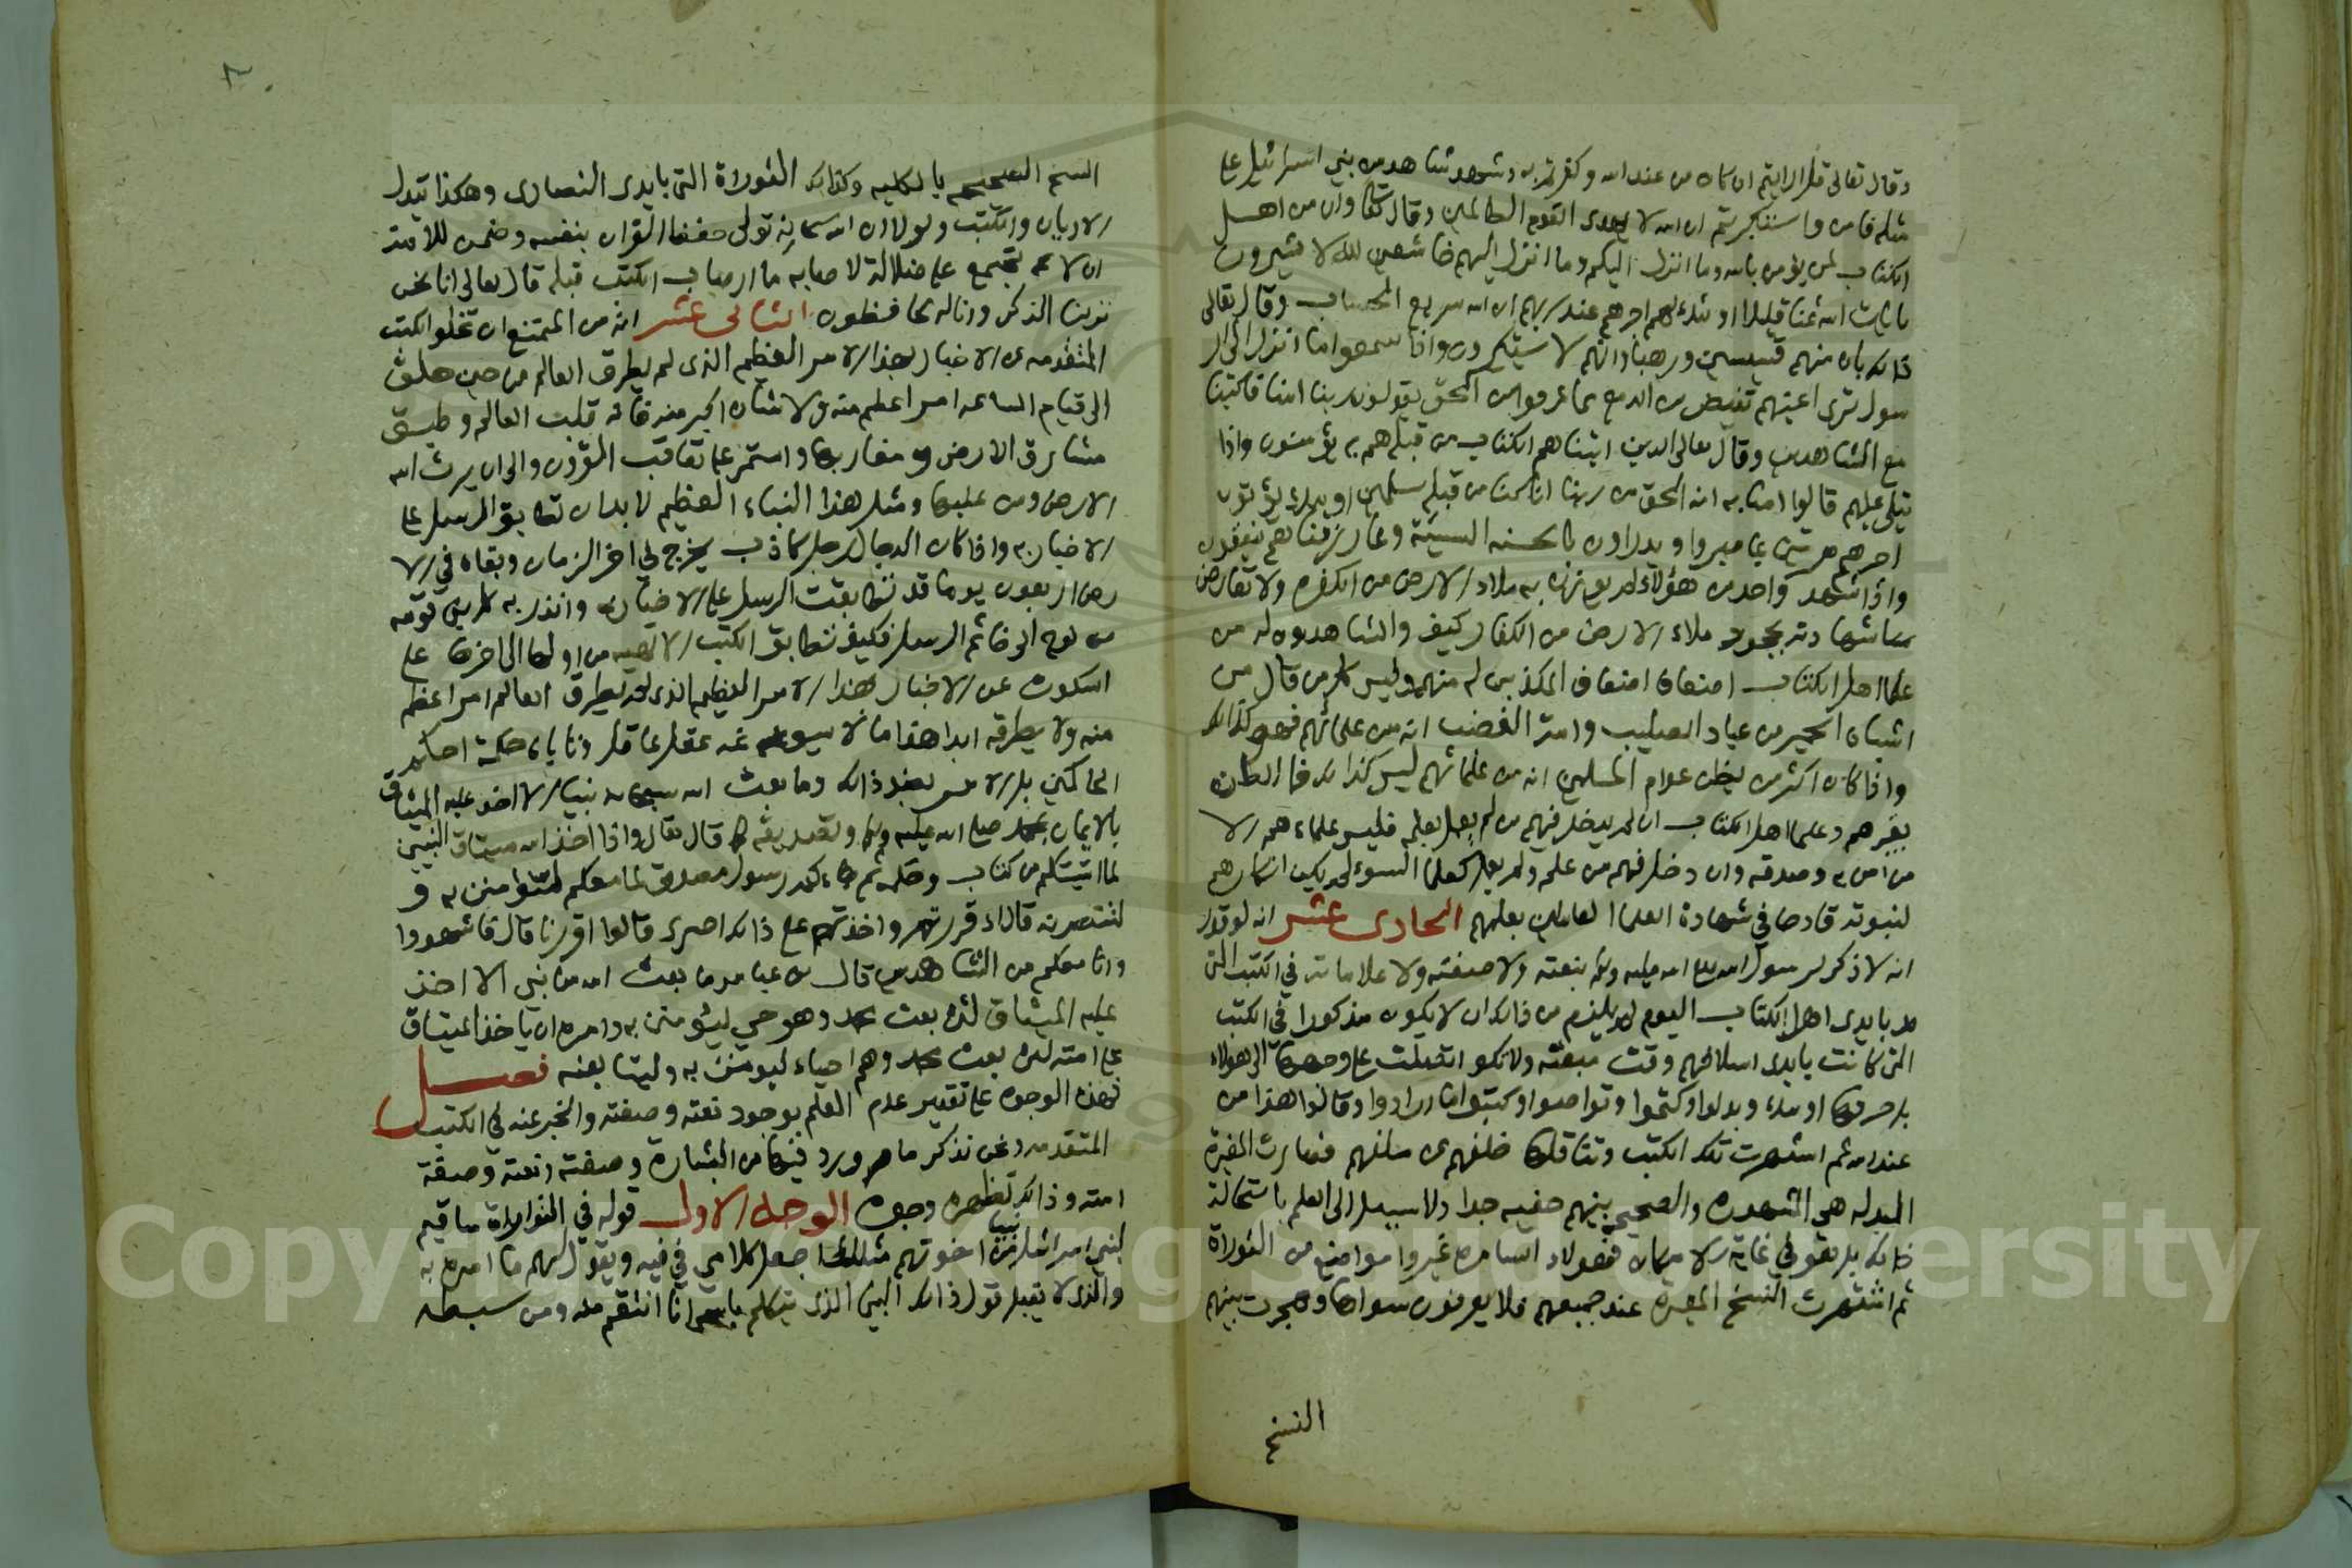 وقال تعالى قل ارايتم ان كان من عند الله وكفرتم به وشهد شاهد من بني اسرائيل على
مثله فامن واستكبرتم ان الله لا يهدى القوم الظالمين وقال تعالى وان من اهل
الكتاب لمن يؤمن بالله وما انزل اليكم وما انزل اليهم خاشعين لله لا يشترون
بايات الله ثمنا قليلا اولئك لهم اجرهم عند ربهم ان الله سريع الحساب وقال تعالى
ذالك بان منهم قسيسين ورهبانا وانهم لا يستكبرون واذا سمعوا ما انزل الى الر
سول ترى اعينهم تفيض من الدمع مما عرفوا من الحق يقولون ربنا امنا فاكتبنا
مع الشاهدين وقال تعالى الذين اتيناهم الكتاب من قبله هم به يؤمنون واذا
يتلى عليهم قالوا امنا به انه الحق من ربنا انا كنا من قبله مسلمين اوليك يؤتون
اجرهم مرتين بما صبروا ويدراون بالحسنه السيئة ومما رزقناهم ينفقون
واذا شهد واحد من هؤلاء لم يوزن به ملاء الارض من الكفره ولا تعارض
شهادته بجحود ملاء الارض من الكفار كيف والشاهدون له من
علما اهل الكتاب اضعاف اضعاف المكذبين له منهم وليس كل من قال من
اشباه الحمير من عباد الصليب وامة الغضب انه من علمائهم فهو كذالك
واذا كان اكثر من يظن عوام المسلمين انه من علمائهم ليس كذالك فما الظن
بغيرهم وعلما اهل الكتاب ان لم يدخل فيهم من لم يعمل بعلمه فليس علماءهم الا
من امن به وصدقه وان دخل فيهم من علم ولم يعمل كعلما السوء لم يكن انكارهم
لنبوته قادحا في شهادة العلما العاملين بعلمهم الحادى عشر انه لو قدر
انه لا ذكر لرسول الله صلى الله عليه وسلم بنعته ولا صفته ولا علاماته في الكتب التى
هى بايدى اهل الكتاب اليوم لم يلزم من ذالك ان لا يكون مذكورا في الكتب
التى كانت بايدى اسلافهم وقت مبعثه ولا تكون اتصلت على وجهها الى هولاء
بل حرفها اوليك وبدلوا وكتموا وتواصوا وكتبوا ما ارادوا وقالوا هذا من
عند الله ثم اشتهرت تلك الكتب وتناقلها خلفهم عن سلفهم فصارت المغيرة
المبدله هى المشهوره والصحيح بينهم خفيه جدا ولا سبيل الى العلم باستحالة
ذالك بل هو في غاية الامكان فهولاء السامره غيروا مواضع من التوراة
ثم اشتهرت النسخ المغيره عند جميعهم فلا يعرفون سواها وهجرت بينهم
النسخ
النسخ الصحيح بالكليه وكذالك التوراة التى بايدى النصارى وهكذا تبدل
الاديان والكتب ولولا ان الله سبحانه تولى حفظ القران بنفسه وضمن للامة
ان لا تجتمع على ضلالة لاصابه ما اصاب الكتب قبله قال تعالى انا نحن
نزلنا الذكر وانا له لحافظون الثانى عشر انه من الممتنع ان تخلو الكتب
المتقدمه عن الاخبار بهذا الامر العظيم الذى لم يطرق العالم من حين خلق
الى قيام الساعه امر اعظم منه ولا شان اكبر منه فانه قلب العالم وطبق
مشارق الارض ومغاربها واستمر على تعاقب القرون والى ان يرث الله
الارض ومن عليها ومثل هذا النباء العظيم لا بد ان تطابق الرسل على
الاخبار به واذا كان الدجال رجل كاذب يخرج في اخر الزمان وبقاه في الا
رض اربعون يوما قد تطابقت الرسل على الاخبار به وانذر به كل نبي قومه
من نوح الى خاتم الرسل فكيف تتطابق الكتب الالهيه من اولها الى اخرها على
السكوت عن الاخبار بهذا الامر العظيم الذى لم يطرق العالم امر اعظم
منه ولا يطرقه ابدا هذا ما لا يسوغه عقل عاقل وتاباه حكمة احكم
الحاكمين بل الامر بضد ذالك وما بعث الله سبحانه نبيا الا اخذ عليه الميثاق
بالايمان بمحمد صلى الله عليه وسلم وتصديقه كما قال تعالى واذا اخذ الله ميثاق النبيين
لما اتيتكم من كتاب وحكمه ثم جاءكم رسول مصدق لما معكم لتؤمنن به و
لتنصرنه قال اءقررتم واخذتم على ذالك اصرى قالوا اقررنا قال فاشهدوا
وانا معكم من الشاهدين قال بن عباس ما بعث الله من نبي الا اخذ
عليه الميثاق لئن بعث محمد وهو حي ليؤمنن به وامره ان ياخذ الميثاق
على امته لئن بعث محمد وهم احياء ليومنن به وليتابعنه فصل
فهذه الوجوه على تقدير عدم العلم بوجود نعته وصفته والخبر عنه في الكتب
المتقدمه ونحن نذكر ما ورد فيها من البشارة وصفته ونعته وصفة
امته وذالك تظهر وجوه الوجه الاول قوله في التوراة ساقيم
لبني اسرائل نبيا من اخوتهم مثلك اجعل كلامي في فيه ويقول لهم ما امره به
والذى لا يقبل قول ذالك النبي الذى يتكلم باسمي انا انتقم منه ومن سبطه